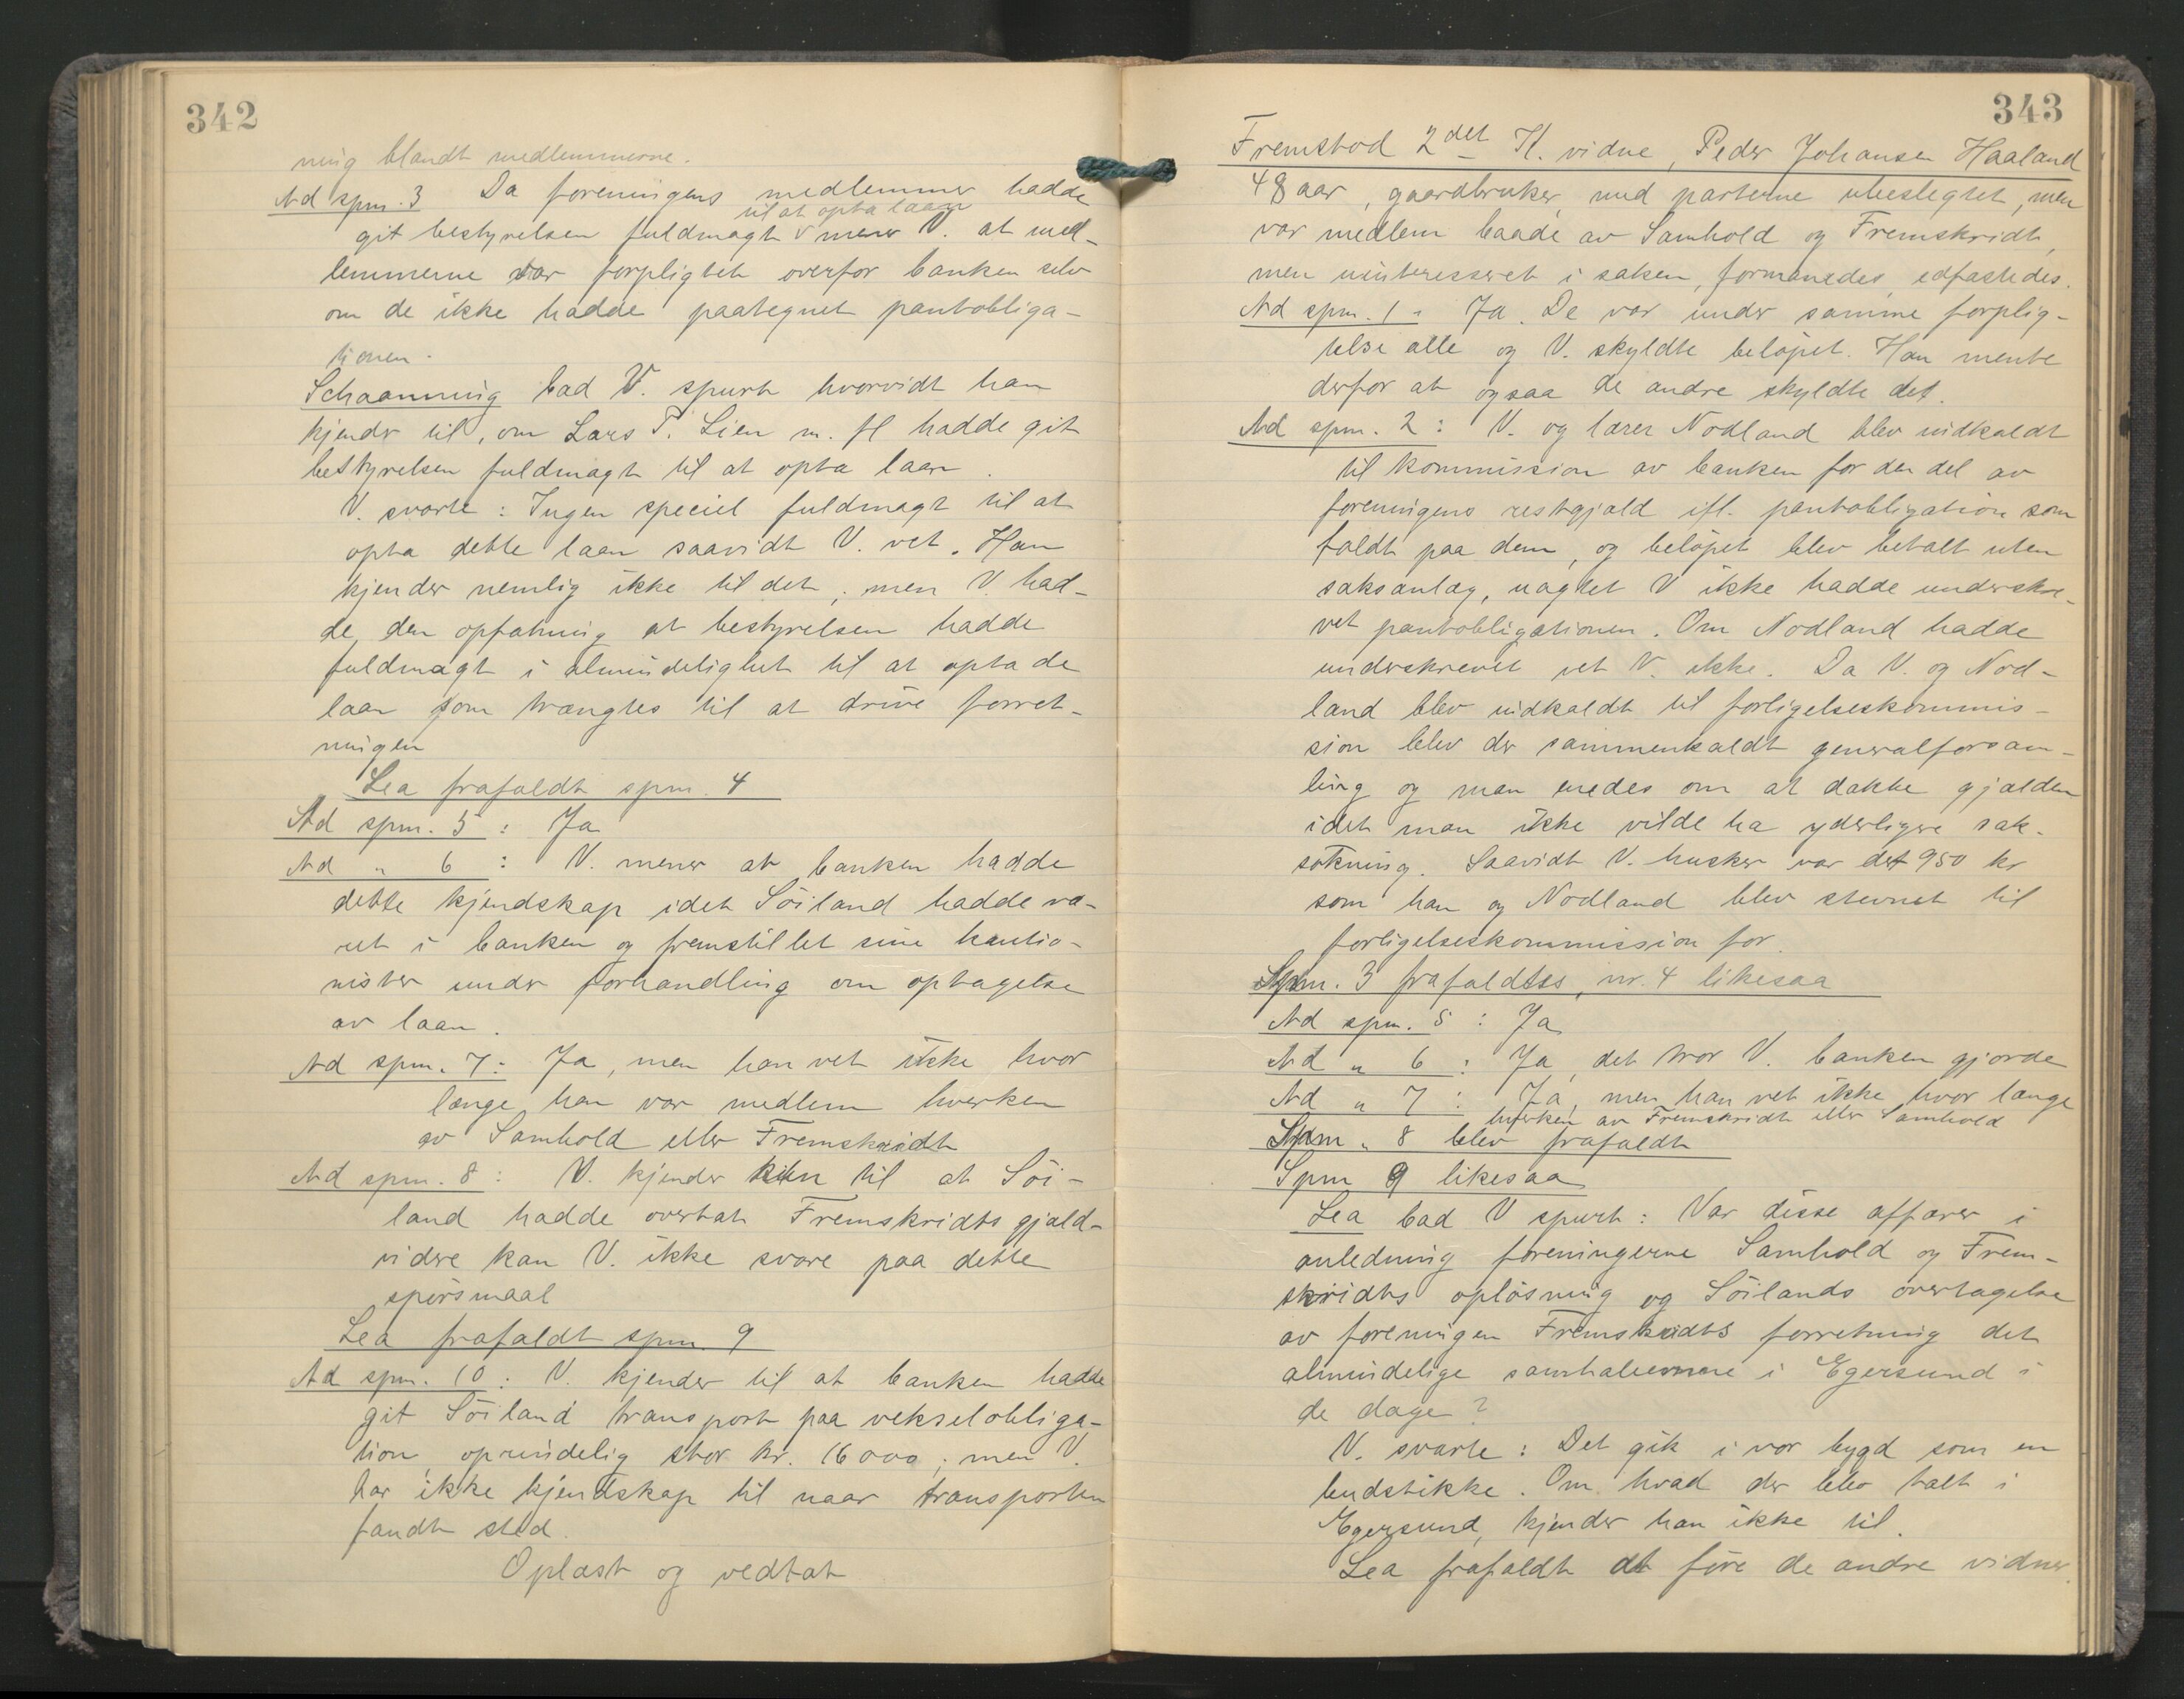 342
ning blandt medlemmerne.
Ad spm. 3 Da foreningens medlemmer hadde
til at opta laan
git bestyrelsen fuldmagt v mener V. at med-
lemmerne var forpligtet overfor banken selv
om de ikke hadde paategnet pantobliga-
tionen.
Schaanning bad V. spurt hvorvidt han
kjender til, om Lars T. Lien m. fl hadde git
bestyrelsen fuldmagt til at opta laan.
V. svarte: Ingen speciel fuldmagt til at
opta dette laan saavidt V. vet. Han
kjender nemlig ikke til det; men V. had-
de den opfatning at bestyrelsen hadde
fuldmagt i almindelighet til at opta de
laan som trængtes til at drive forret-
ningen
Lea frafaldt spm. 4
Ad spm. 5: Ja
Ad " 6: V. mener at banken hadde
dette kjendskap idet Söiland hadde væ-
ret i banken og fremstillet sine kautio-
nister under forhandling om optagelse
av laan.
Ad spm. 7: Ja, men han vet ikke hvor
længe han var medlem hverken
av Samhold eller Fremskridt
Ad spm. 8: V. kjender kun til at Söi-
land hadde overtat Fremskridts gjæld
videre kan V. ikke svare paa dette
spörsmaal
Lea frafaldt spm. 9
Ad spm. 10: V. kjender til at banken hadde
git Söiland transport paa vekselobliga-
tion, oprindelig stor kr. 16000; men V.
har ikke kjendskap til naar transporten
fandt sted.
Oplæst og vedtat
343
Fremstod 2det H. vidne, Peder Johansen Haaland
48 aar, gaardbruker, med parterne ubeslegtet, men
var medlem baade av Samhold og Fremskridt,
men uinteresseret i saken, formanedes, edfæstedes.
Ad spm. 1: Ja. De var under samme forplig-
telse alle og V. skyldte belöpet. Han mente
derfor at ogsaa de andre skyldte det.
Ad spm. 2: V. og lærer Nodland blev indkaldt
til kommission av banken for den del av
foreningens restgjæld ifl. pantobligation som
faldt paa dem, og belöpet blev betalt uten
saksanlæg, uagtet V ikke hadde underskre-
vet pantobligationen. Om Nodland hadde
underskrevet vet V. ikke. Da V. og Nod-
land blev indkaldt til forligelseskommis-
sion blev der sammenkaldt generalforsam-
ling og man enedes om at dække gjælden
idet man ikke vilde ha yderligere sak-
sökning. Saavidt V. husker var det 950 kr
som han og Nodland blev stevnet til
forligelseskommission for.
Spm. 3 frafaldtes, nr. 4 likesaa
Ad spm. 5: Ja
Ad " 6: Ja, det tror V. banken gjorde
Ad " 7: Ja, men han vet ikke hvor længe
hverken av Fremskridt eller Samhold
Spm " 8 blev frafaldt
Spm 9 likesaa
Lea bad V spurt: Var disse affærer i
anledning foreningerne Samhold og Frem-
skridts oplösning og Söilands overtagelse
av foreningen Fremskridts forretning det
almindelige samtaleemne i Egersund i
de dage?
V. svarte: Det gik i vor bygd som en
budstikke. Om hvad der blev talt i
Egersund, kjender han ikke til.
Lea frafaldt at före de andre vidner.